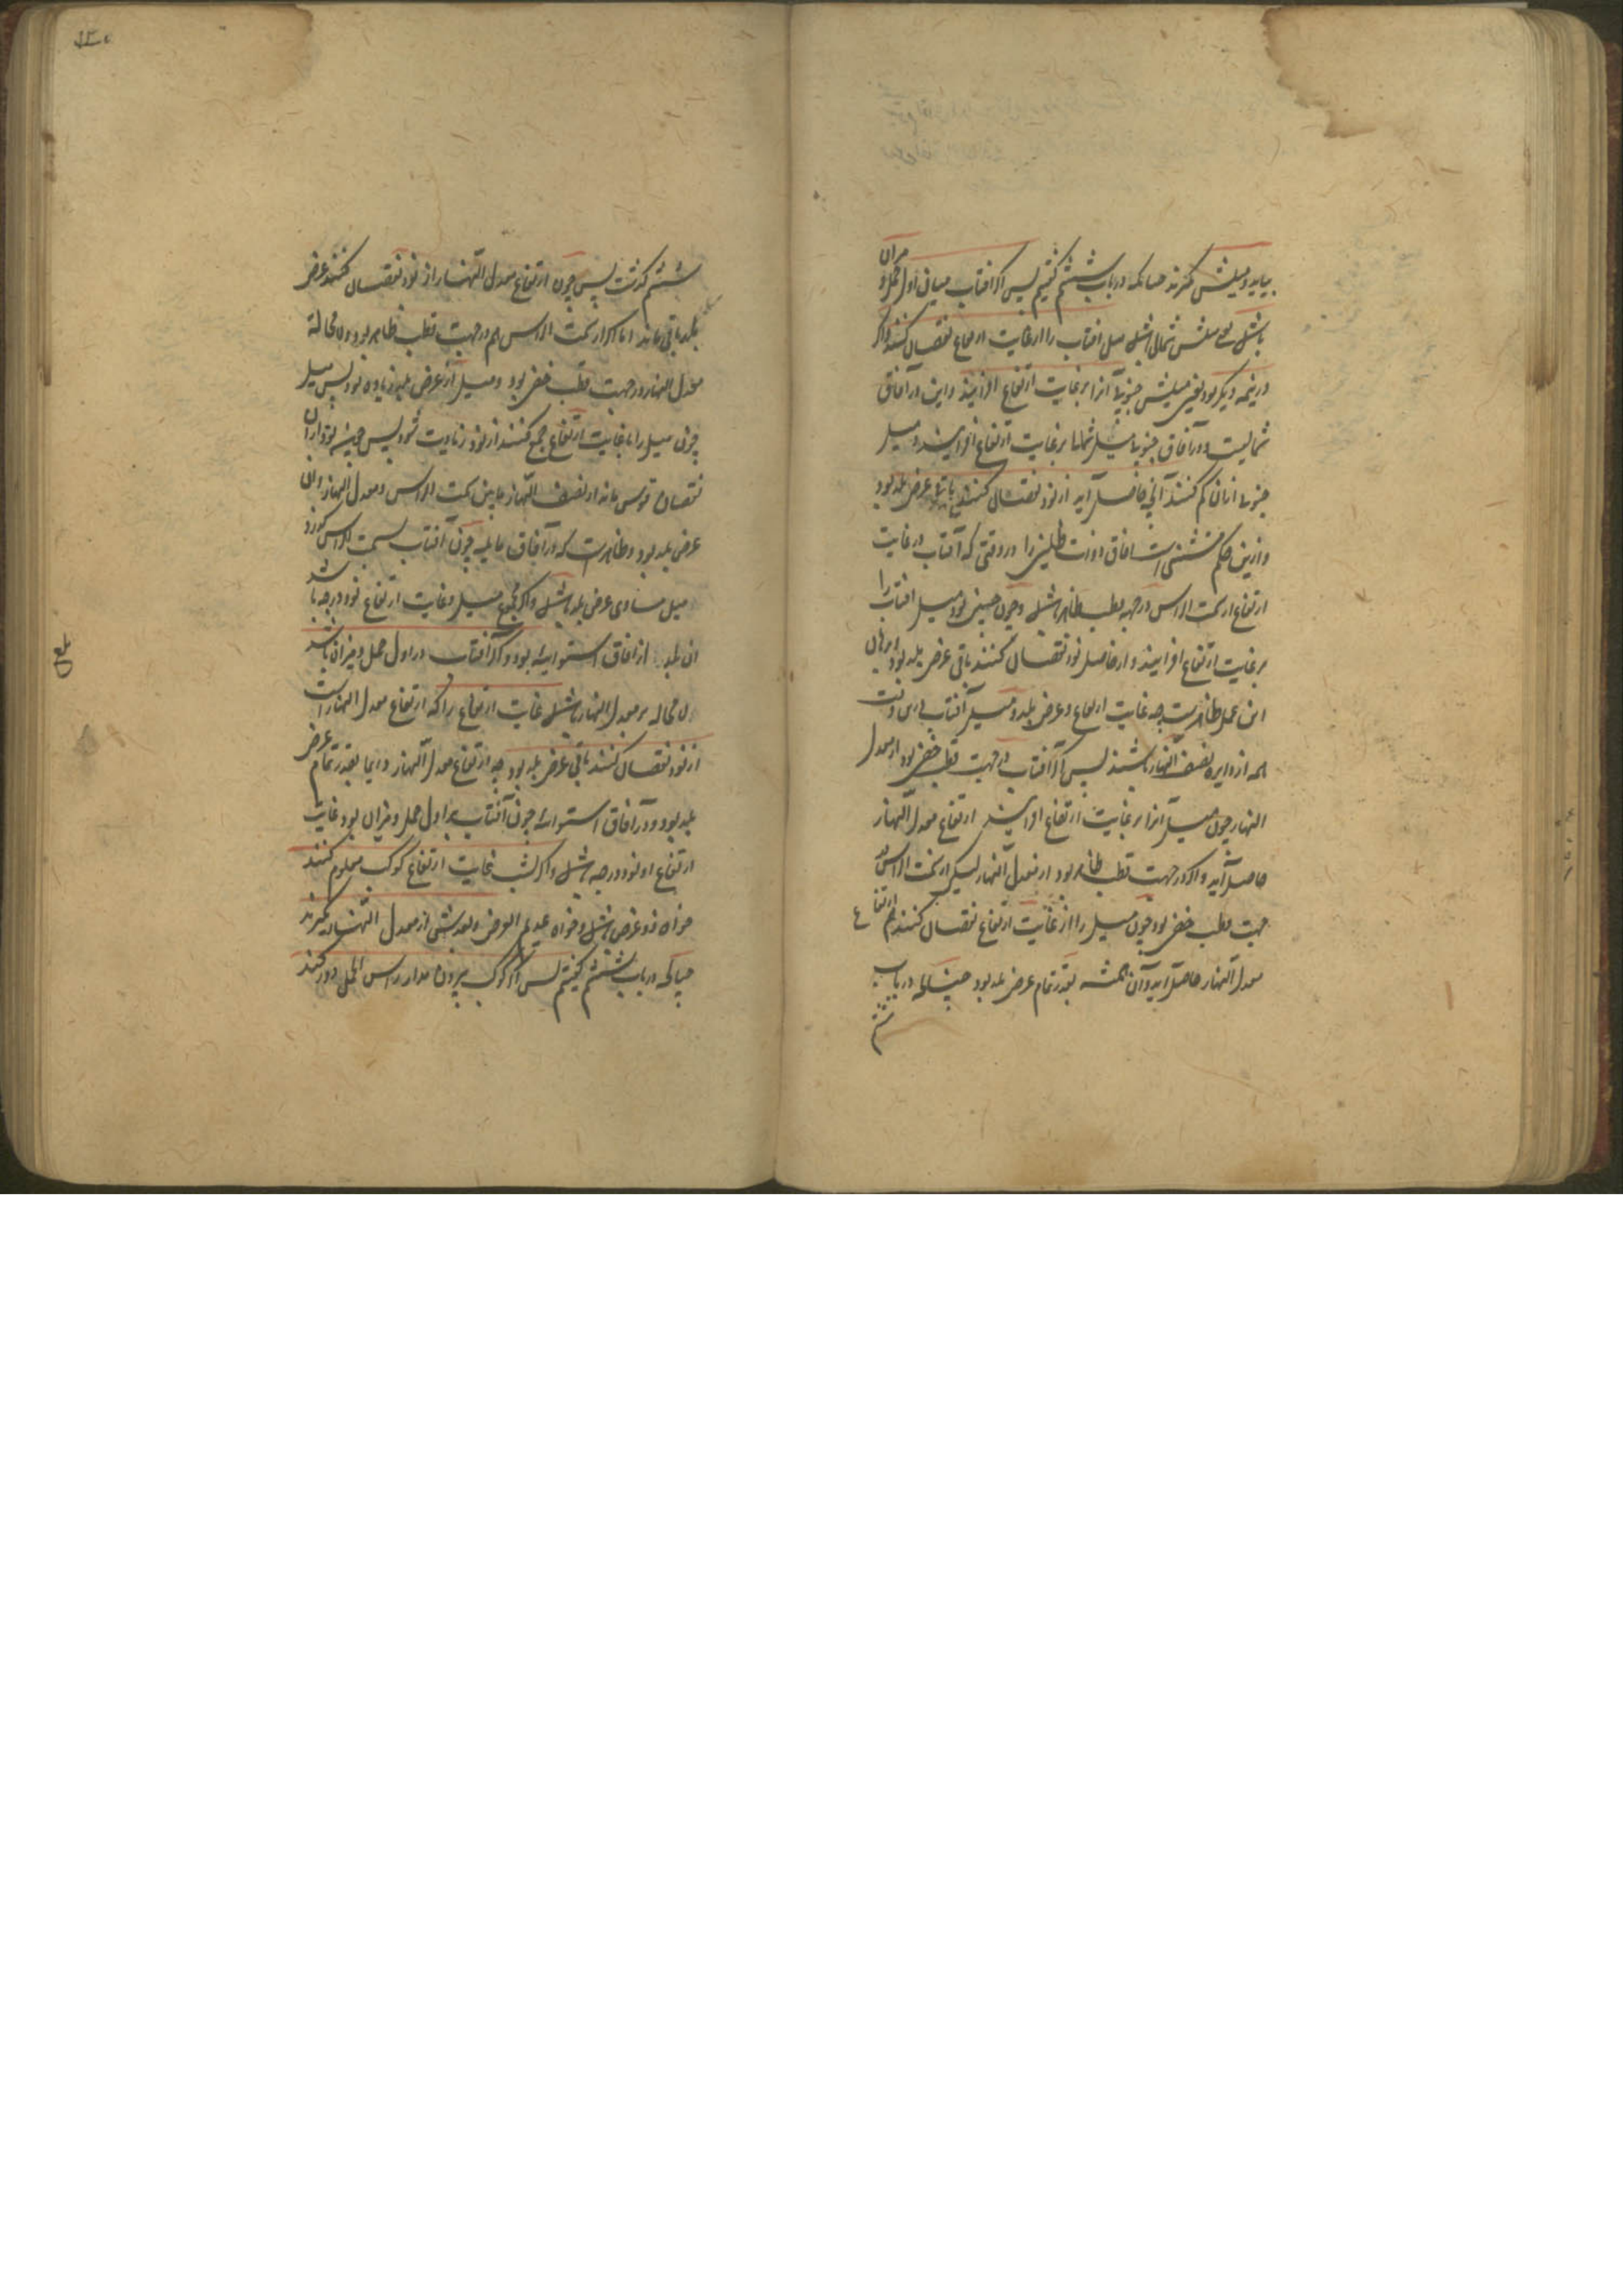 بیاید و میلش گیرند چنانکه در باب ششم گفتیم پس اگر آفتاب میان اول حمل و میزان
باشد یعنی میلش شمالی باشد میل آفتاب را از غایت ارتفاع نقصان کنند و اگر
در نیمه دیگر بود یعنی میلش جنوبی آنرا بر غایت ارتفاع افزایند و این در آفاق
شمالیست و در آفاق جنوبی میل شمالی بر غایت ارتفاع افزایند و میل
جنوبی از آن کم کنند آنچ حاصل آید از نود نقصان کنند باقی عرض بلد بود
و ازین حکم مستثنی است آفاق ذوات ظلین را در وقتی که آفتاب در غایت
ارتفاع از سمت الراس در جهة قطب ظاهر باشد و چون چنین بود میل آفتاب را
بر غایت ارتفاع افزایند و از حاصل نود نقصان کنند باقی عرض بلد بود برهان
این عمل ظاهریست چه غایت ارتفاع و عرض بلد و میل آفتاب درین وقت
همه از دایره نصف النهار باشند پس اگر آفتاب در جهت قطب خفی بود از معدل
النهار چون میل آنرا بر غایت ارتفاع افزایند ارتفاع معدل النهار
حاصل آید و اگر در جهت قطب ظاهر بود از معدل النهار لیکن از سمت الراس در
جهت قطب خفی بود چون میل را از غایت ارتفاع نقصان کنند هم ارتفاع
معدل النهار حاصل آید و آن همیشه بقدر تمام عرض بلد بود چنانکه در باب
ششم
ششم گذشت پس چون ارتفاع معدل النهار را از نود نقصان کنند عرض
بلد باقی ماند اما اگر از سمت الراس هم در جهت قطب ظاهر بود و لا محالة
معدل النهار در جهت قطب خفی بود و میل از عرض بلد زیاده بود پس میل
چون میل را با غایت ارتفاع جمع کنند از نود زیادت شود پس چون نود از آن
نقصان قوس ماند از نصف النهار ما بین سمت الراس و معدل النهار و آن
عرض بلد بود و ظاهرست که در آفاق مایله چون آفتاب بسمت الراس گذرد
میل مساوی عرض بلد باشد و اگر مجموع میل و غایت ارتفاع نود درجه باشد
آن بلد از آفاق استوایی بود و اگر آفتاب در اول حمل و میزان باشد
لا محاله بر معدل النهار باشد غایت ارتفاع را که ارتفاع معدل النهار است
از نود نقصان کنند باقی عرض بلد بود چه ارتفاع معدل النهار دایما بقدر تمام عرض
بلد بود و در آفاق استوایی چون آفتاب بر اول حمل و میزان بود غایت
ارتفاع او نود درجه باشد و اگر بشب غایت ارتفاع کوکب معلوم کنند
خواه ذو عرض باشد و خواه عدیم العرض و بعدش از معدل النهار بگیرند
چنانکه در باب ششم گفتیم پس اگر کوکب بیرون مدار راس الحمل دور کند